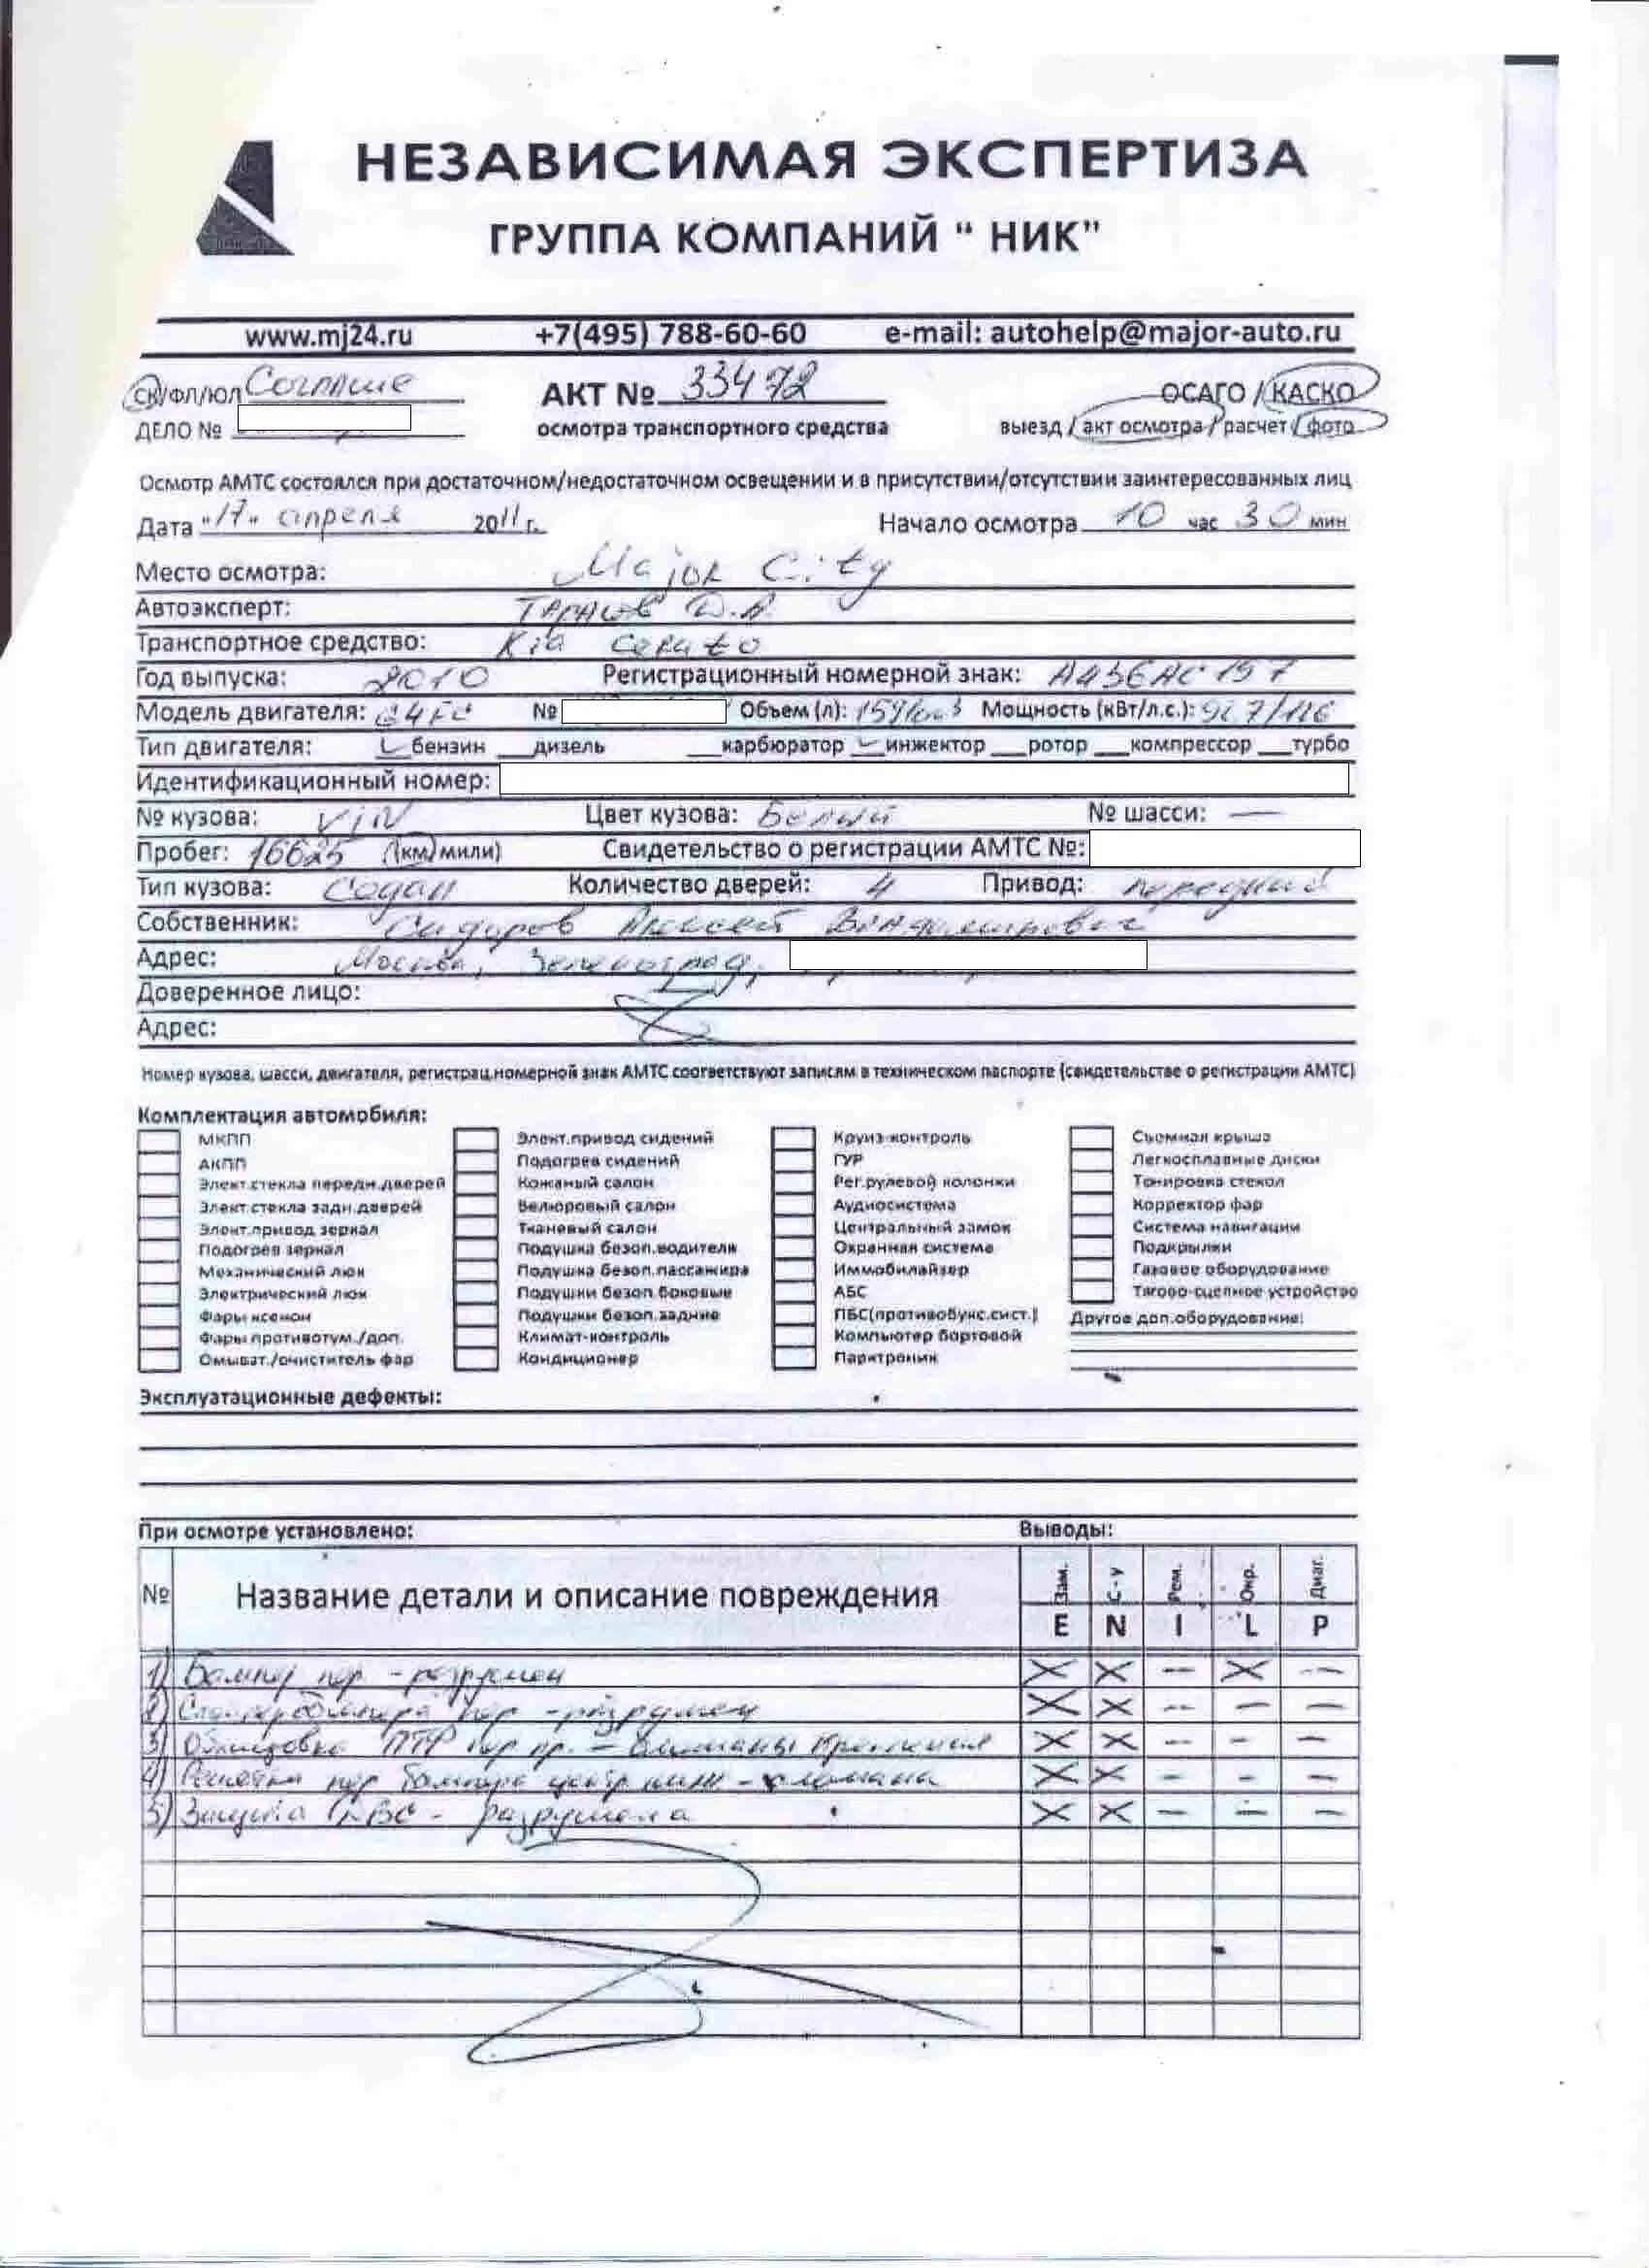 НЕЗАВИСИМАЯ ЭКСПЕРТИЗА
ГРУППА КОМПАНИЙ “ НИК”
www.mj24.ru +7(495) 788-60-60 e-mail: autohelp@major-auto.ru
СК/ФЛ/ЮЛ Согласие АКТ № 33472 ОСАГО / КАСКО
ДЕЛО № осмотра транспортного средства выезд / акт осмотра / расчет / фото
Осмотр АМТС состоялся при достаточном/недостаточном освещении и в присутствии/отсутствии заинтересованных лиц
Дата "17" апреля 2011 г. Начало осмотра 10 час 30 мин
Место осмотра: Major City
Автоэксперт: Д.А.
Транспортное средство: Kia Cerato
Год выпуска: 2010 Регистрационный номерной знак: А436АС197
Модель двигателя: G4FC № Объем (л): 1591 Мощность (кВт/л.с.): 92 7/126
Тип двигателя: бензин дизель карбюратор инжектор ротор компрессор турбо
Идентификационный номер:
№ кузова: VIN Цвет кузова: Белый № шасси: —
Пробег: 16625 (км/мили) Свидетельство о регистрации АМТС №:
Тип кузова: Седан Количество дверей: 4 Привод: передний
Собственник: Сидоров Алексей Владимирович
Адрес: Москва, Зеленоград,
Доверенное лицо:
Адрес:
Номер кузова, шасси, двигателя, регистрац.номерной знак АМТС соответствуют записям в техническом паспорте (свидетельстве о регистрации АМТС)
Комплектация автомобиля:
МКПП Элект.привод сидений Круиз-контроль Съемная крыша
АКПП Подогрев сидений ГУР Легкосплавные диски
Элект.стекла передн.дверей Кожаный салон Рег.рулевой колонки Тонировка стекол
Элект.стекла задн.дверей Велюровый салон Аудиосистема Корректор фар
Элект.привод зеркал Тканевый салон Центральный замок Система навигации
Подогрев зеркал Подушка безоп.водителя Охранная система Подкрылки
Механический люк Подушка безоп.пассажира Иммобилайзер Газовое оборудование
Электрический люк Подушки безоп.боковые АБС Тягово-сцепное устройство
Фары ксенон Подушки безоп.задние ПБС(противобукс.сист.) Другое доп.оборудование:
Фары противотум./доп. Климат-контроль Компьютер бортовой
Омыват./очиститель фар Кондиционер Парктроник
Эксплуатационные дефекты:
При осмотре установлено: Выводы:
№ Название детали и описание повреждения Зам. С-у Рем. Окр. Диаг.
E N I L P
1) Бампер пер - разрушен X X — X —
2) Спойлер бампера пер - разрушен X X — — —
3) Облицовка ПТФ пер пр. - сломаны крепления X X — — —
4) Решетка пер бампера центр ниж - сломана X X — — —
5) Защита ДВС - разрушена X X — — —